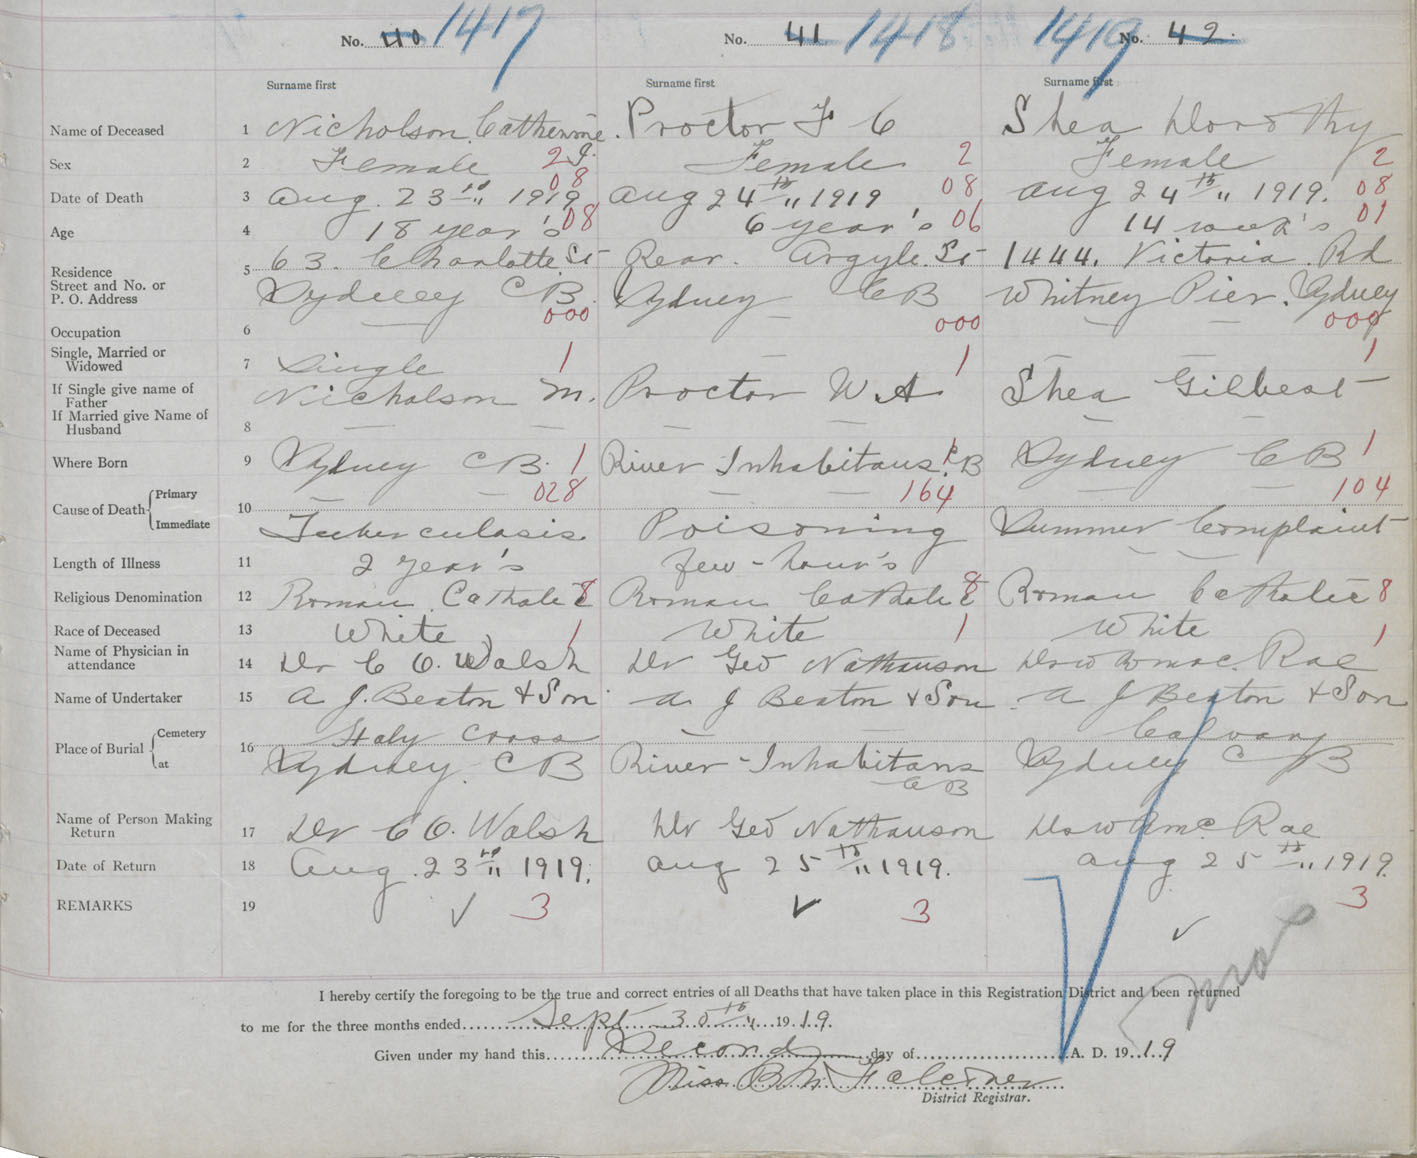 No. 40 1417 No. 41 1418 1419 No. 42
Surname first Surname first Surname first
Name of Deceased 1 Nicholson Catherine Proctor F C Shea Dorothy
Sex 2 Female 2 Female 2 Female 2
Date of Death 3 Aug. 23rd 1919 08 Aug 24th 1919 08 Aug 24th 1919. 08
Age 4 18 year's 08 6 year's 06 14 week's 01
Residence 5 63. Charlotte St Rear. Argyle. St 1444. Victoria Rd
Street and No. or
P. O. Address Sydney CB. Sydney CB Whitney Pier. Sydney
Occupation 6 000 000 000
Single, Married or
Widowed 7 Single 1 1 1
If Single give name of
Father Nicholson M. Proctor W. A Shea Gilbert
If Married give Name of
Husband 8
Where Born 9 Sydney CB. 1 River Inhabitans. CB 1 Sydney CB 1
Cause of Death Primary 10 028 164 104
Immediate Tuberculosis. Poisoning Summer Complaint
Length of Illness 11 2 year's few-hour's
Religious Denomination 12 Roman Catholic 8 Roman Catholic 8 Roman Catholic 8
Race of Deceased 13 White 1 White 1 White 1
Name of Physician in
attendance 14 Dr C O. Walsh Dr Geo Nathanson Rae
Name of Undertaker 15 A J. Beaton + Son A. J Beaton + Son A J Beaton + Son
Place of Burial Cemetery 16 Holy Cross Calvary
at Sydney. CB River-Inhabitans CB Sydney CB
Name of Person Making
Return 17 Dr C O. Walsh Dr Geo Nathanson Rae
Date of Return 18 Aug. 23rd 1919. Aug 25th 1919. Aug 25th 1919.
REMARKS 19 3 3 3
I hereby certify the foregoing to be the true and correct entries of all Deaths that have taken place in this Registration District and been returned
to me for the three months ended Sept 30th 1919.
Given under my hand this Second day of A. D. 1919
Miss B M Falconer
District Registrar.